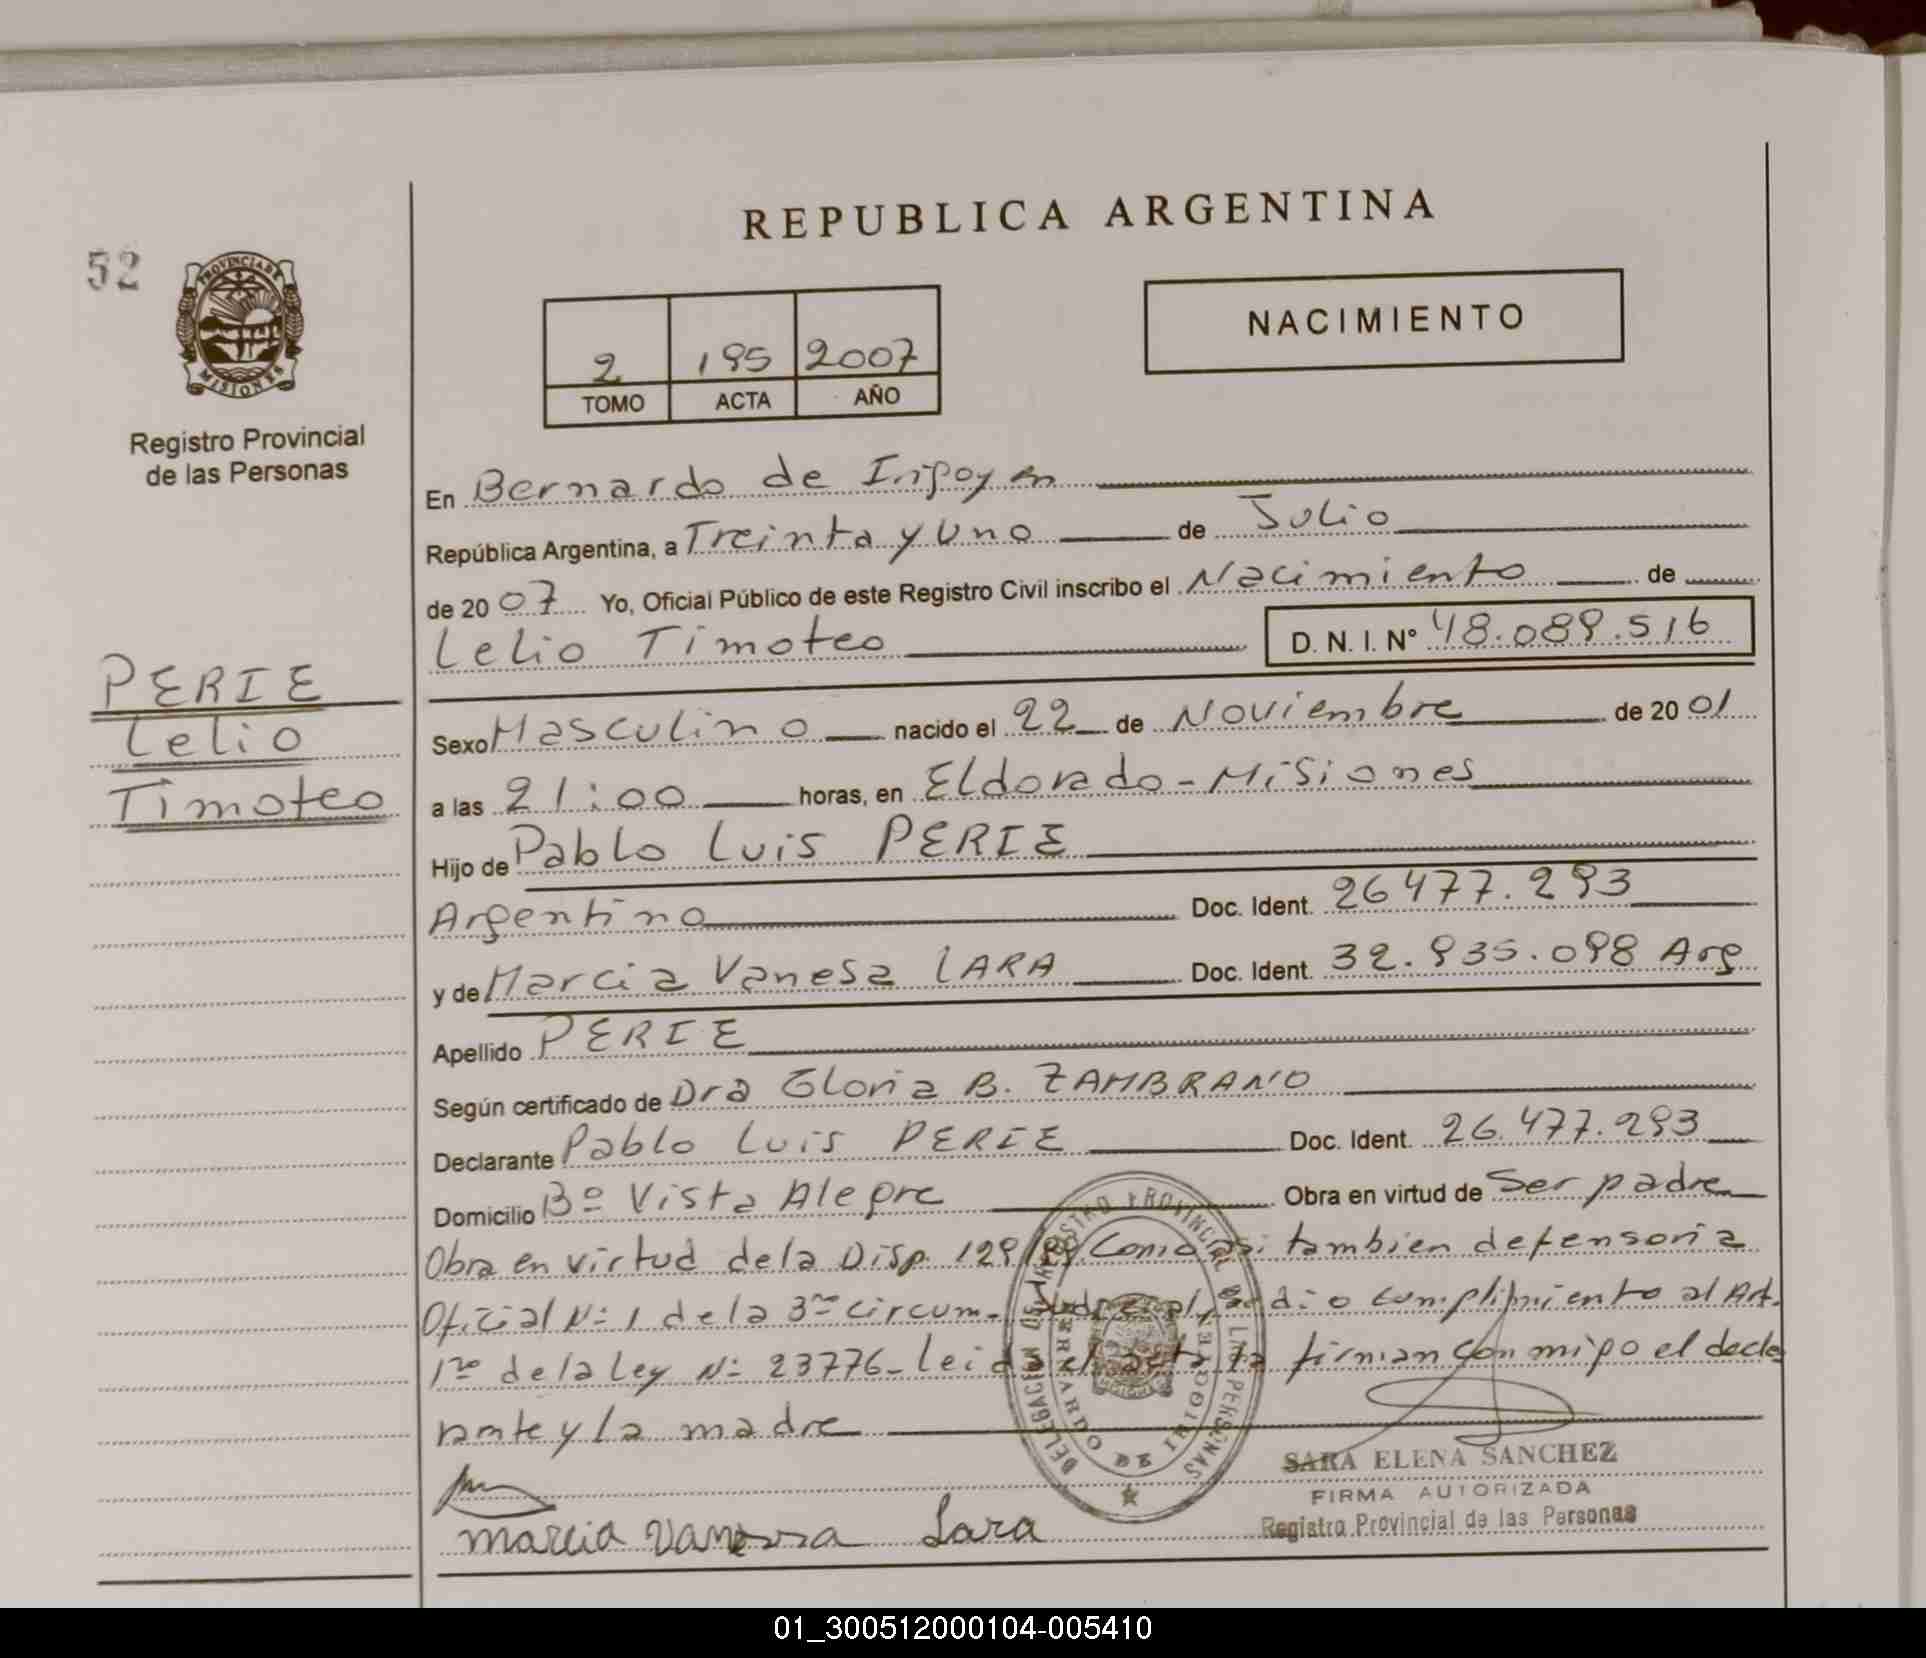 REPUBLICA ARGENTINA
52
PROVINCIA DE
MISIONES
Registro Provincial
de las Personas
NACIMIENTO
2 195 2007
TOMO ACTA AÑO
En Bernardo de Irigoyen
República Argentina, a Treinta y Uno de Julio
de 2007 Yo, Oficial Público de este Registro Civil inscribo el Nacimiento de
Lelio Timoteo D. N. I. N° 48.089.516
PERIE
Lelio
Timoteo
Sexo Masculino nacido el 22 de Noviembre de 2001
a las 21:00 horas, en Eldorado - Misiones
Hijo de Pablo Luis PERIE
Argentino Doc. Ident. 26477.293
y de Marcia Vanesa LARA Doc. Ident. 32.935.098 Arg
Apellido PERIE
Según certificado de Dra Gloria B. ZAMBRANO
Declarante Pablo Luis PERIE Doc. Ident. 26.477.293
Domicilio Bº Vista Alegre Obra en virtud de Ser padre
Obra en virtud de la Disp. 129/ Como así tambien defensoria
Oficial Nº 1 de la 3ra circum. dio cumplimiento al Art.
1ro de la Ley Nº 23776_ Leida el acta la firman con migo el decla
rante y la madre
DELEGACION DEL REGISTRO PROVINCIAL DE LAS PERSONAS
BERNARDO DE IRIGOYEN
SARA ELENA SANCHEZ
FIRMA AUTORIZADA
Registro Provincial de las Personas
Marcia Vanessa Lara
01_300512000104-005410